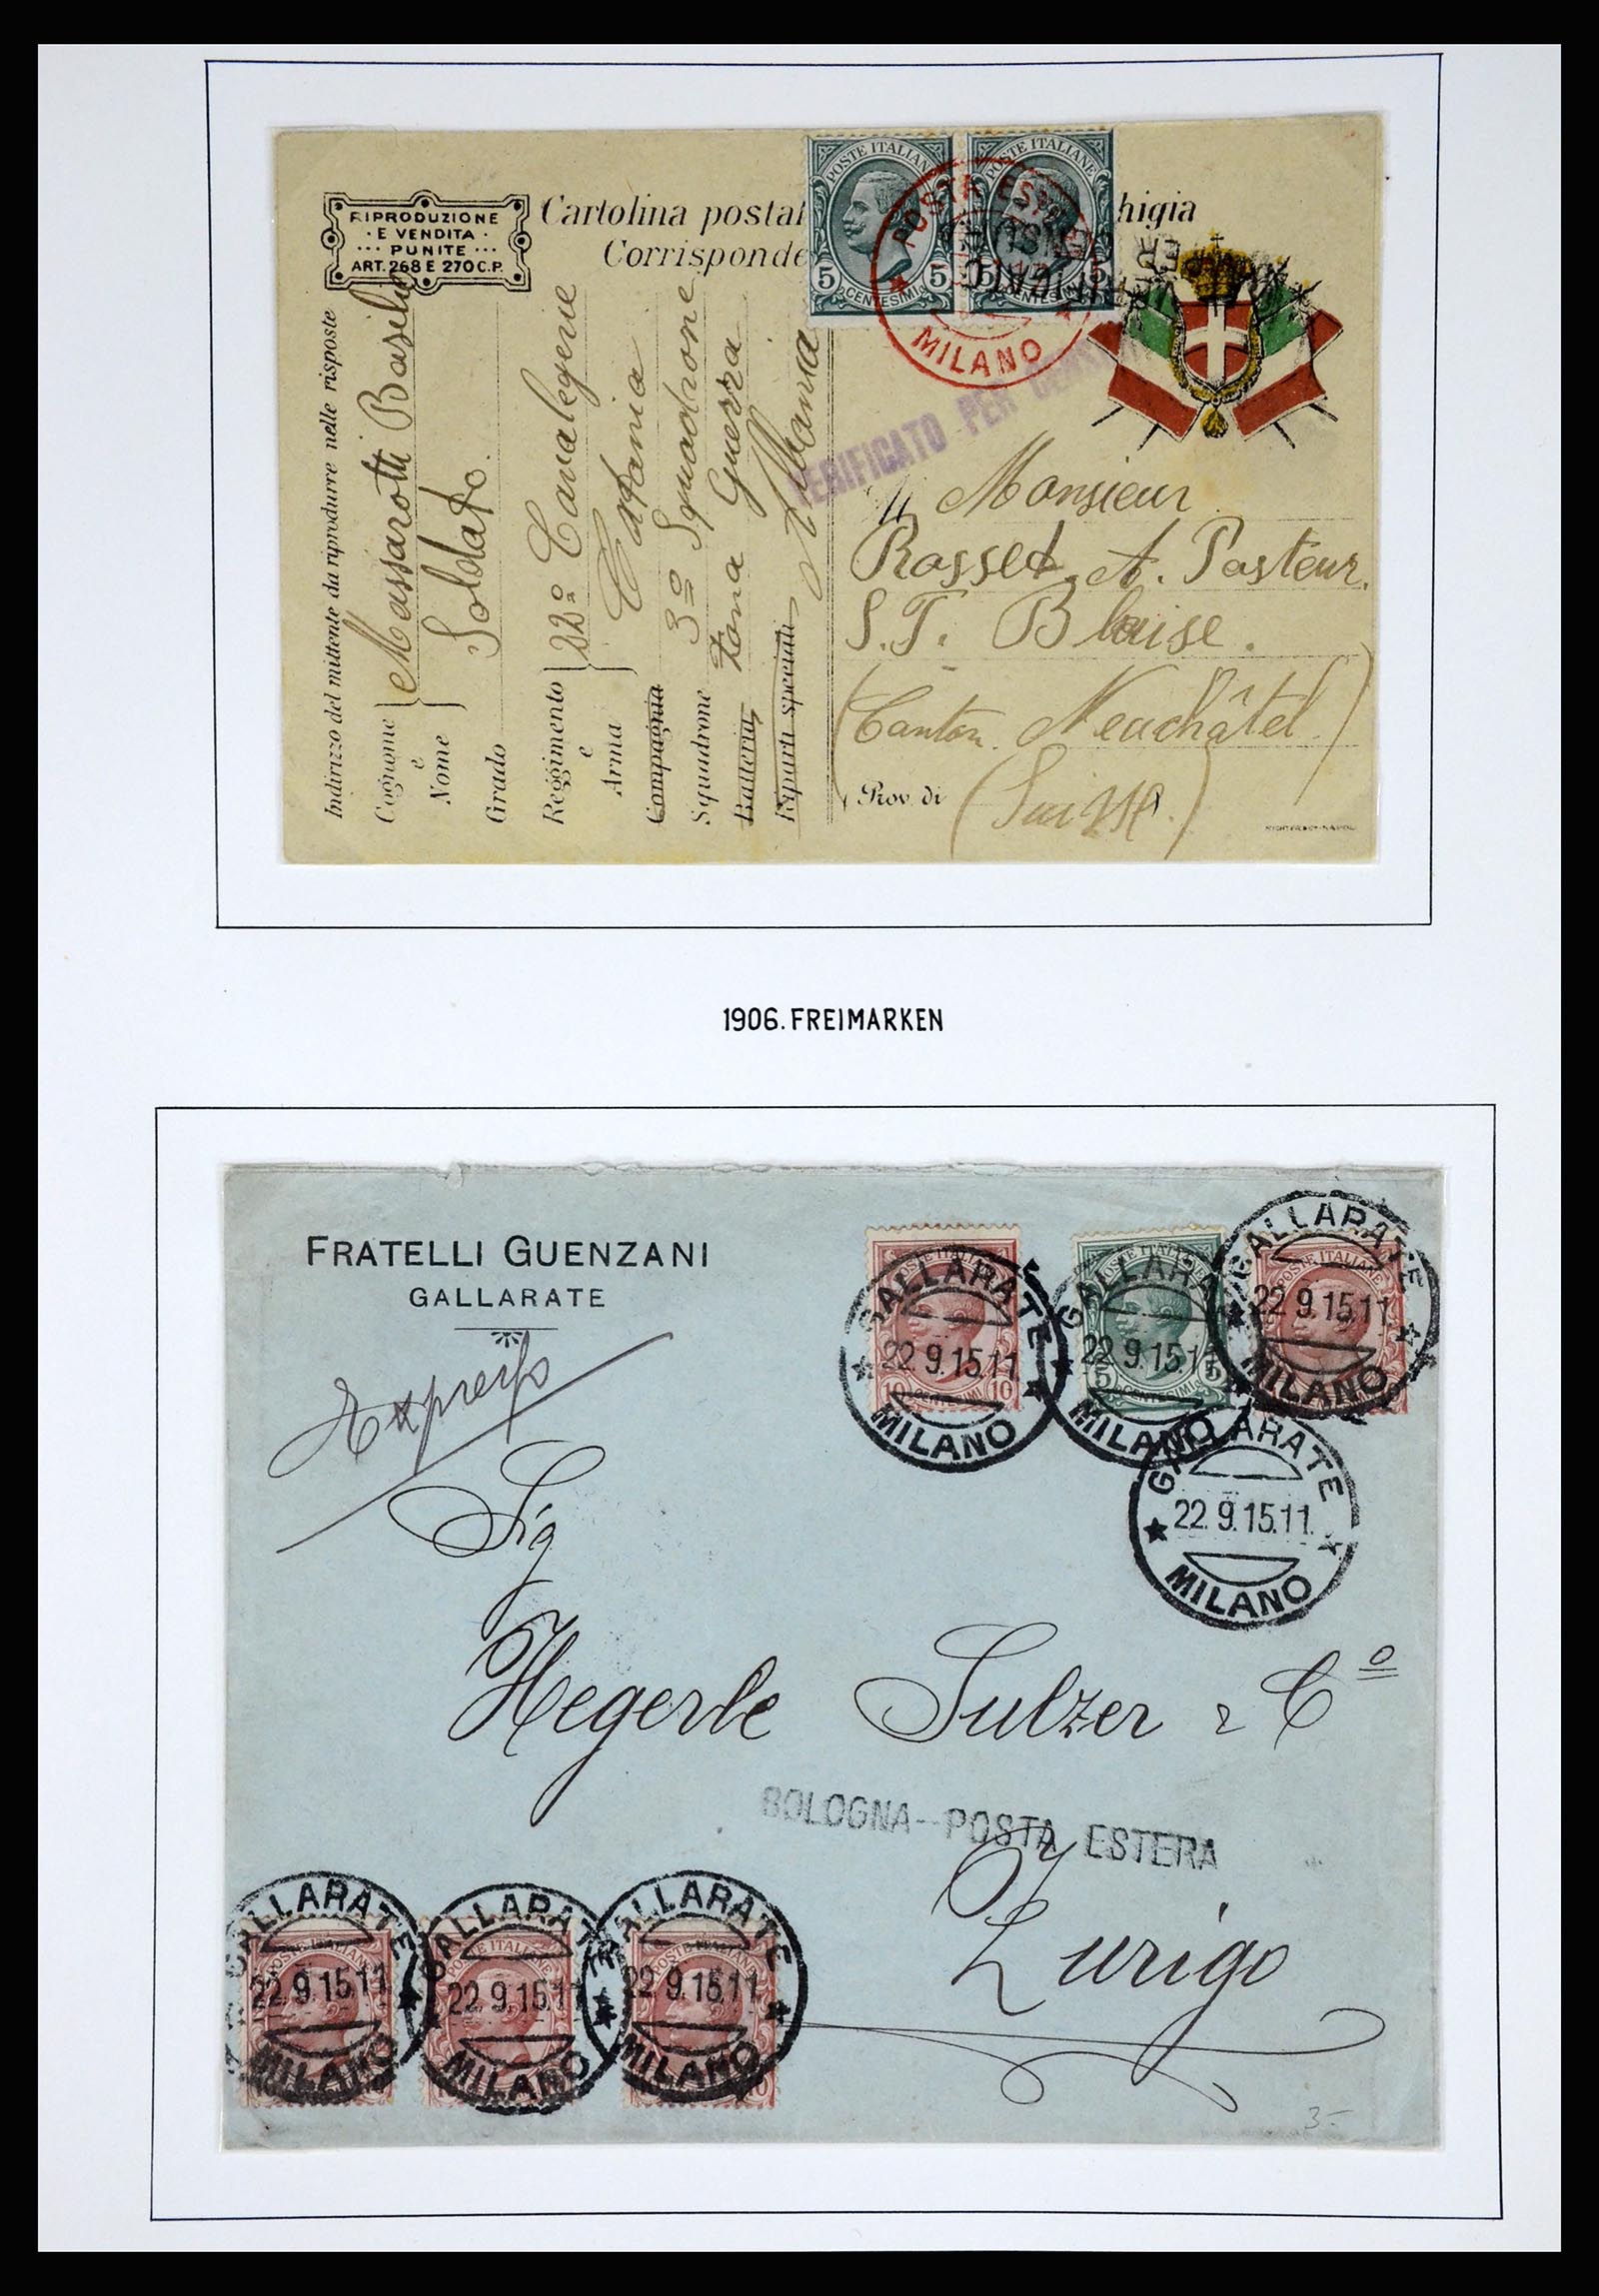 RIPRODUZIONE
E VENDITA
PUNITE
ART. 268 E 270 C.P.
Cartolina postal
Corrisponde
higia
POSTE ITALIANE
5 CENTESIMI 5
POSTE ITALIANE
5 CENTESIMI 5
POSTA ESTERA
MILANO
VERIFICATO PER CENS
Indirizzo del mittente da riprodurre nelle risposte
Cognome e Nome
Massarotti Basilio
Grado
Soldato.
Reggimento e Arma
22º Cavalegerie
Catania
Compagnia
Squadrone
3º Squadrone
Batteria
Zona Guerra
Riparti speciali
Monsieur
Rosset A. Pasteur.
S.T. Blaise.
(Canton Neuchâtel.)
Prov. di
(Suisse.)
1906. FREIMARKEN
FRATELLI GUENZANI
GALLARATE
POSTE ITALIANE
10 CENTESIMI 10
POSTE ITALIANE
5 CENTESIMI 5
POSTE ITALIANE
GALLARATE
22.9.15.11
MILANO
GALLARATE
22.9.15.11
MILANO
GALLARATE
22.9.15.11
MILANO
GALLARATE
22.9.15.11.
MILANO
Expresso
Sig
Hegerle Sulzer & Cº
BOLOGNA--POSTA ESTERA
Zurigo
GALLARATE
22.9.15.11
MILANO
GALLARATE
22.9.15.11
MILANO
GALLARATE
22.9.15.11
MILANO
3-